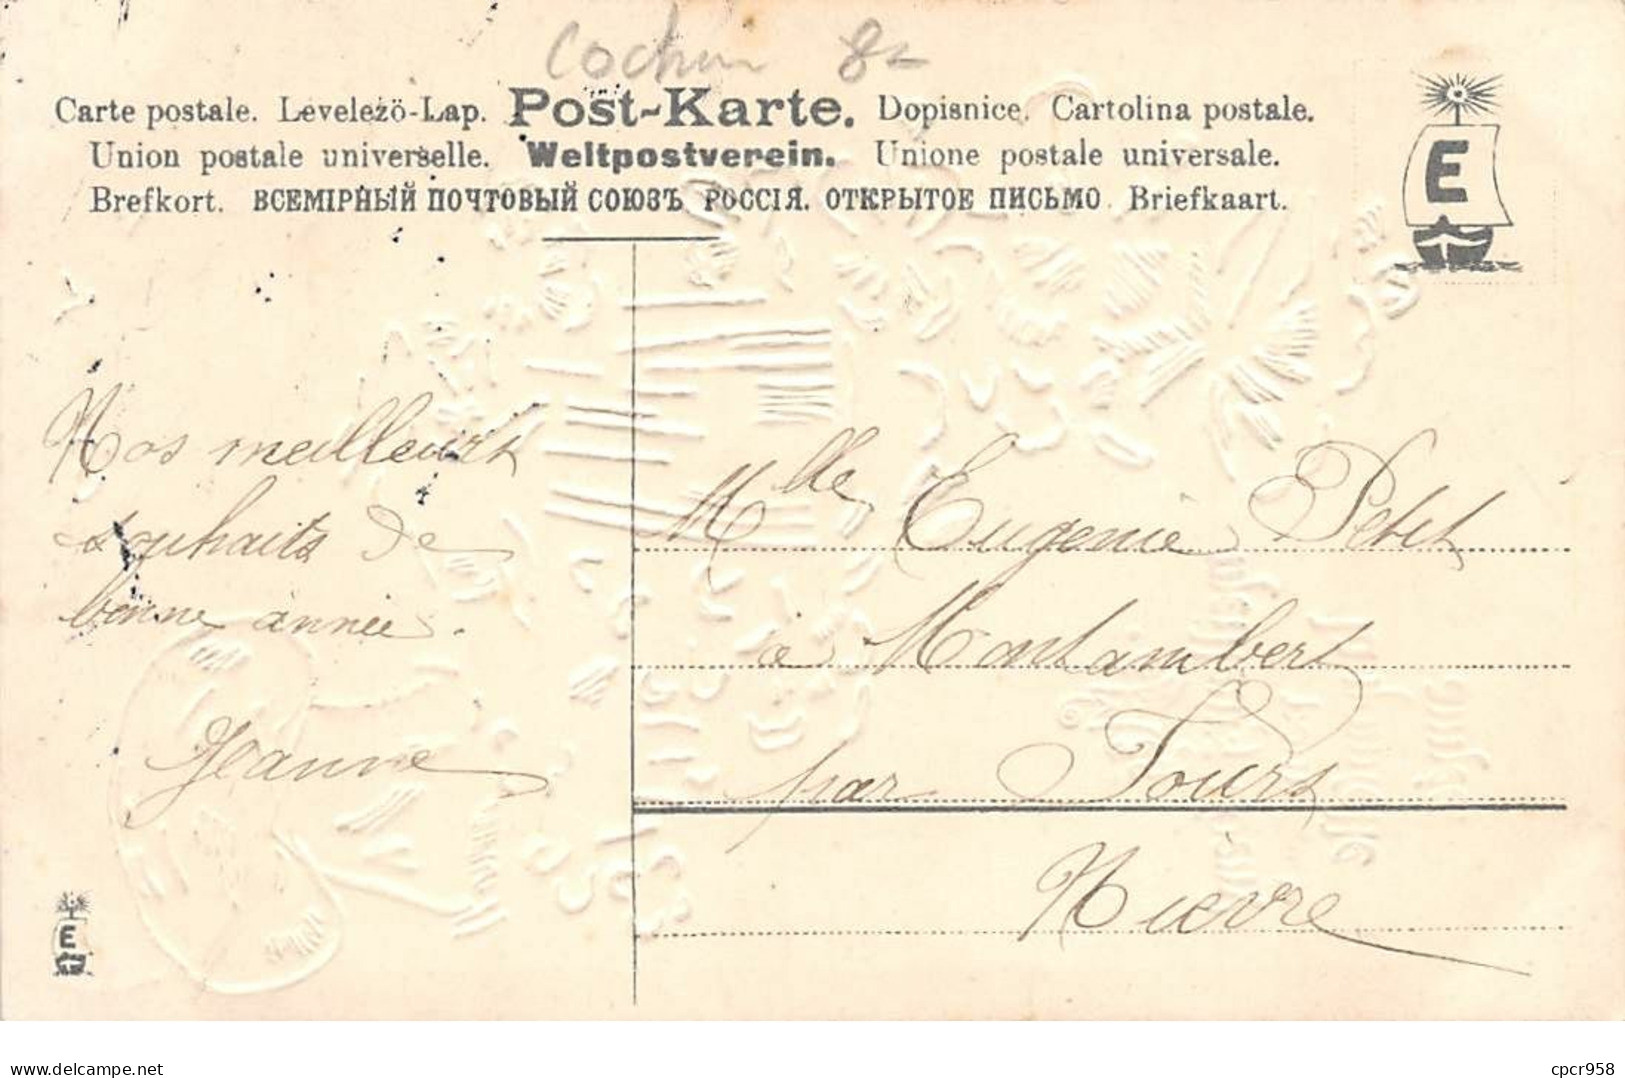 Cochon 8-
Carte postale. Levelező-Lap. Post-Karte. Dopisnice. Cartolina postale.
Union postale universelle. Weltpostverein. Unione postale universale.
Brefkort. ВСЕМІРНЫЙ ПОЧТОВЫЙ СОЮЗЪ РОССІЯ. ОТКРЫТОЕ ПИСЬМО Briefkaart.
E
Nos meilleurs
souhaits de
bonne année.
Jeanne
Mlle Eugenie Petit
à Montambert
par Tours
Nièvre
E
delcampe.net
cpcr958